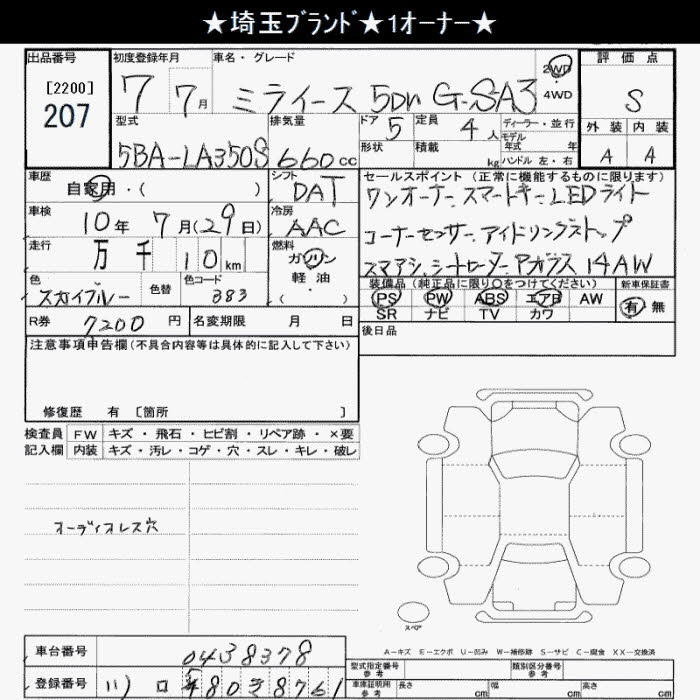 ★埼玉ﾌﾞﾗﾝﾄﾞ★1オーナー★
出品番号
[2200]
207
初度登録年月
7 7月
車名・グレード
ミライース 5Dr G・SA3
2WD
4WD
評価点
S
外装 内装
A A
型式
5BA-LA350S
排気量
660cc
ドア 5
形状
定員 4人
積載 kg
ディーラー・並行
モデル
年式 年
ハンドル 左・右
車歴
自家用・( )
車検
10年 7月(29日)
走行
万 千 10 km
色
スカイブルー
色替
色コード
383
シフト
DAT
冷房
AAC
燃料
ガソリン
・
軽油
( )
セールスポイント (正常に機能するものに限ります)
ワンオーナー、スマートキー、LEDライト
コーナーセンサー、アイドリングストップ
スマアシ、シートヒーター、Pガラス 14AW
装備品(純正品に限り○をつけてください)
PS PW ABS エアB AW
SR ナビ TV カワ
新車保証書
有 無
R券 7200円
名変期限 月 日
後日品
注意事項申告欄(不具合内容等は具体的に記入して下さい)
修復歴 有 [箇所 ]
検査員
記入欄
FW キズ・飛石・ヒビ割・リペア跡・×要
内装 キズ・汚レ・コゲ・穴・スレ・キレ・破レ
オーディオレス穴
スペア
A-キズ E-エクボ U-凹み W-補修跡 S-サビ C-腐食 XX-交換済
車台番号 0438378
登録番号
型式指定番号
参考
類別区分番号
参考
車庫証明用
参考
長さ cm
幅 cm
高さ cm